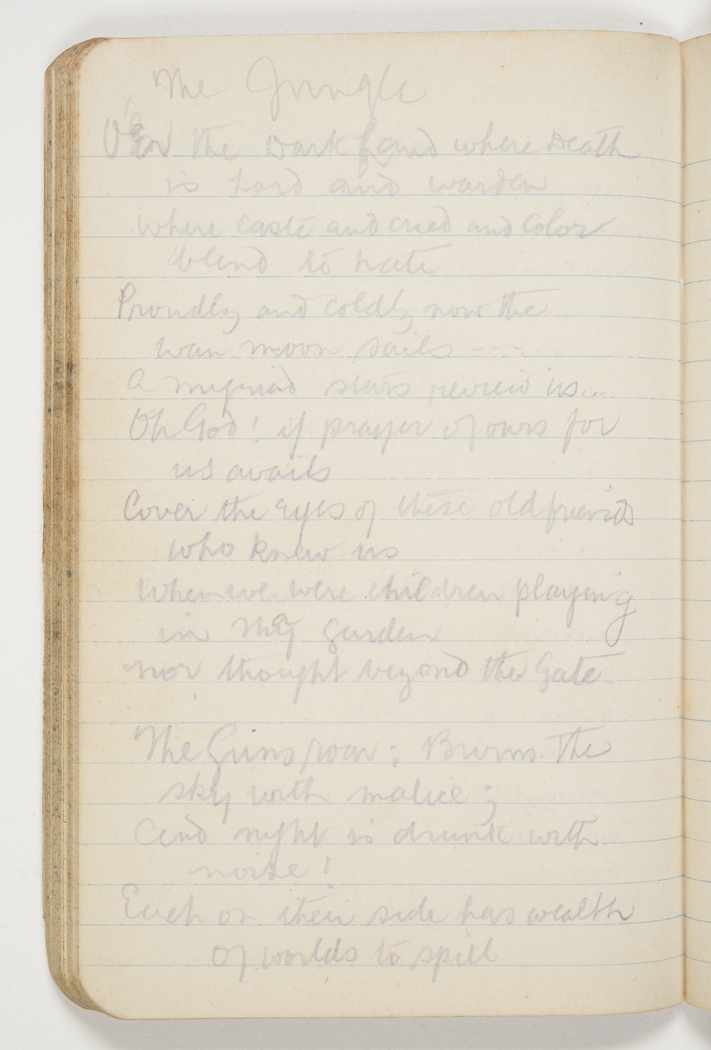 The Jungle
O'er the dark Land where Death
is Lord and warden
where caste and creed and Color
blend to hate
Proudly and coldly now the
wan moon sails ---
A myriad stars review us...
Oh God! if prayer of ours for
us avails
Cover the eyes of these old friends
who knew us
When we were children playing
in Thy garden
nor thought beyond the Gate
The Guns roar: Burns the
sky with malice;
And night is drunk with
noise!
Each on their side has wealth
of worlds to spill